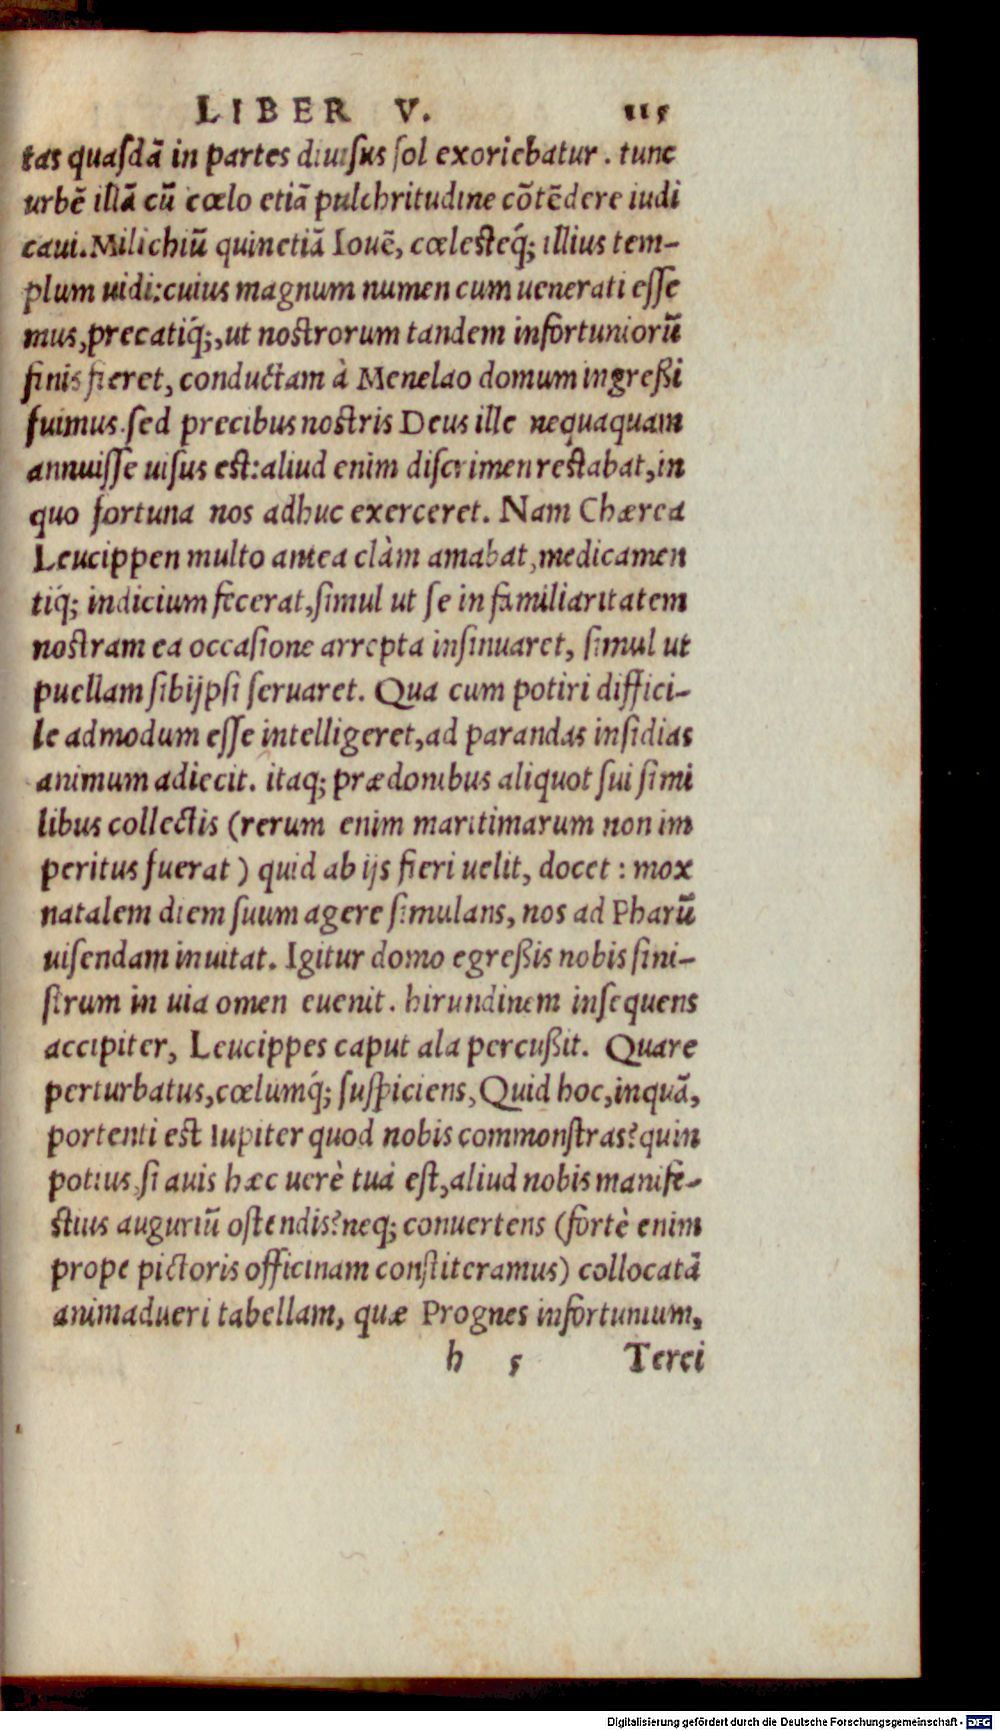 LIBER V. 115
tas quasdā in partes diuisus sol exoriebatur. tunc
urbē illā cū cœlo etiā pulchritudine cōtēdere iudi
caui. Milichiū quinetiā Iouē, cœlesteq́; illius tem-
plum uidi: cuius magnum numen cum uenerati esse
mus, precatiq́;, ut nostrorum tandem infortuniorū
finis fieret, conductam à Menelao domum ingreßi
fuimus. sed precibus nostris Deus ille nequaquam
annuisse uisus est: aliud enim discrimen restabat, in
quo fortuna nos adhuc exerceret. Nam Chærea
Leucippen multo antea clàm amabat, medicamen
tiq́; indicium fecerat, simul ut se in familiaritatem
nostram ea occasione arrepta insinuaret, simul ut
puellam sibijpsi seruaret. Qua cum potiri diffici-
le admodum esse intelligeret, ad parandas insidias
animum adiecit. itaq; prædonibus aliquot sui simi
libus collectis (rerum enim maritimarum non im
peritus fuerat) quid ab ijs fieri uelit, docet: mox
natalem diem suum agere simulans, nos ad Pharū
uisendam inuitat. Igitur domo egreßis nobis sini-
strum in uia omen euenit. hirundinem insequens
accipiter, Leucippes caput ala percußit. Quare
perturbatus, cœlumq́; suspiciens, Quid hoc, inquā,
portenti est Iupiter quod nobis commonstras? quin
potius, si auis hæc uerè tua est, aliud nobis manife-
stius auguriū ostendis? neq; conuertens (fortè enim
prope pictoris officinam constiteramus) collocatā
animadueri tabellam, quæ Prognes infortunium,
h 5 Terei
Digitalisierung gefördert durch die Deutsche Forschungsgemeinschaft - DFG